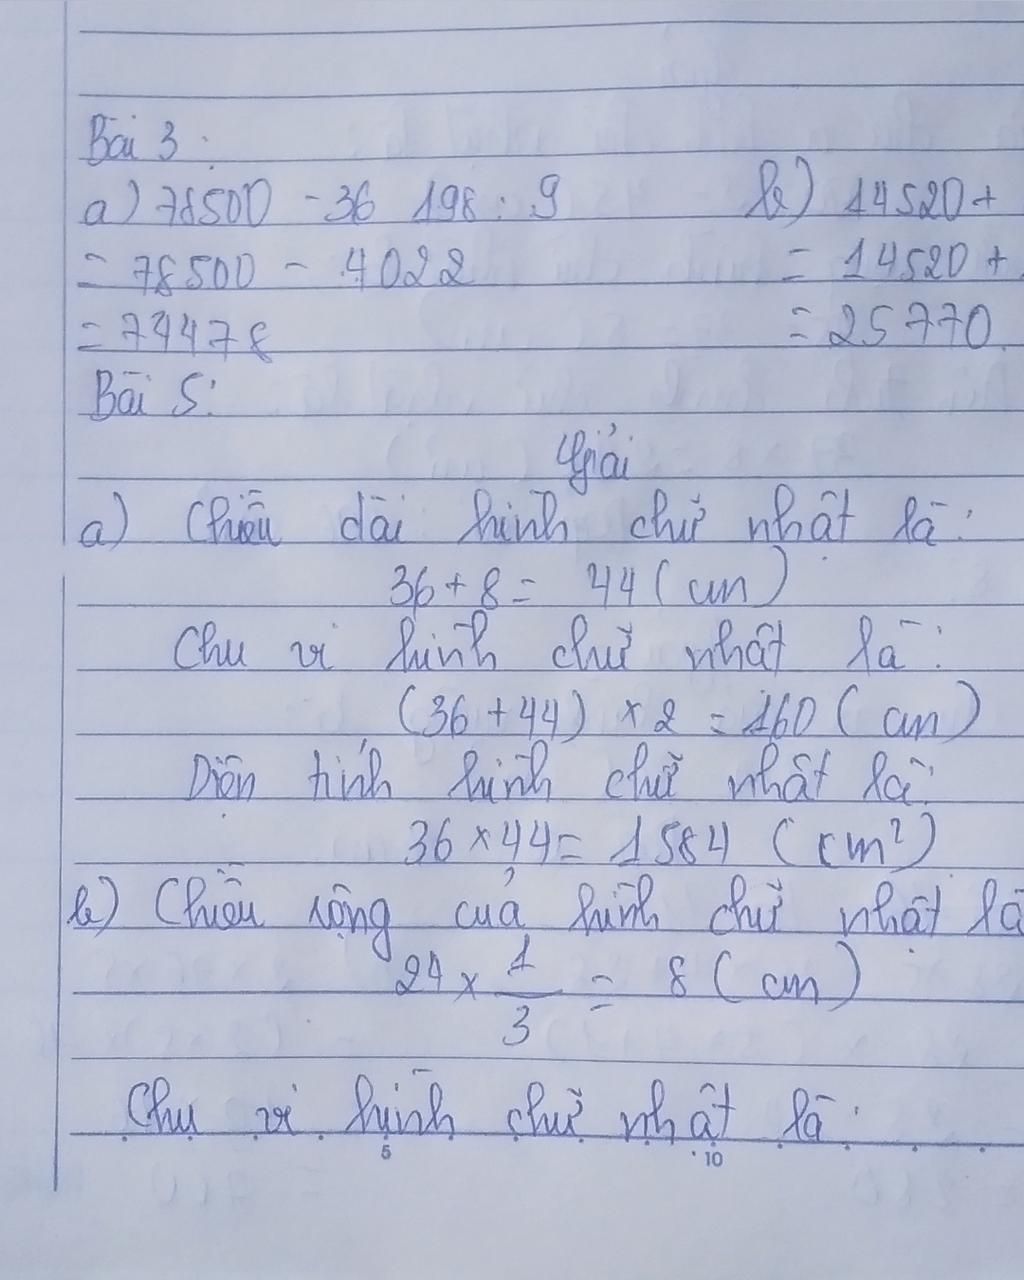 Bài 3:
a) 78500 - 36 198 : 9 b) 14520 +
= 78500 - 4022 = 14520 +
= 74478 = 25770
Bài 5:
Giải
a) Chiều dài hình chữ nhật là:
36 + 8 = 44 (cm)
Chu vi hình chữ nhật là:
(36 + 44) × 2 = 160 (cm)
Diện tính hình chữ nhật là:
36 × 44 = 1584 (cm²)
b) Chiều rộng của hình chữ nhật là
24 × 1/3 = 8 (cm)
Chu vi hình chữ nhật là:
5 10